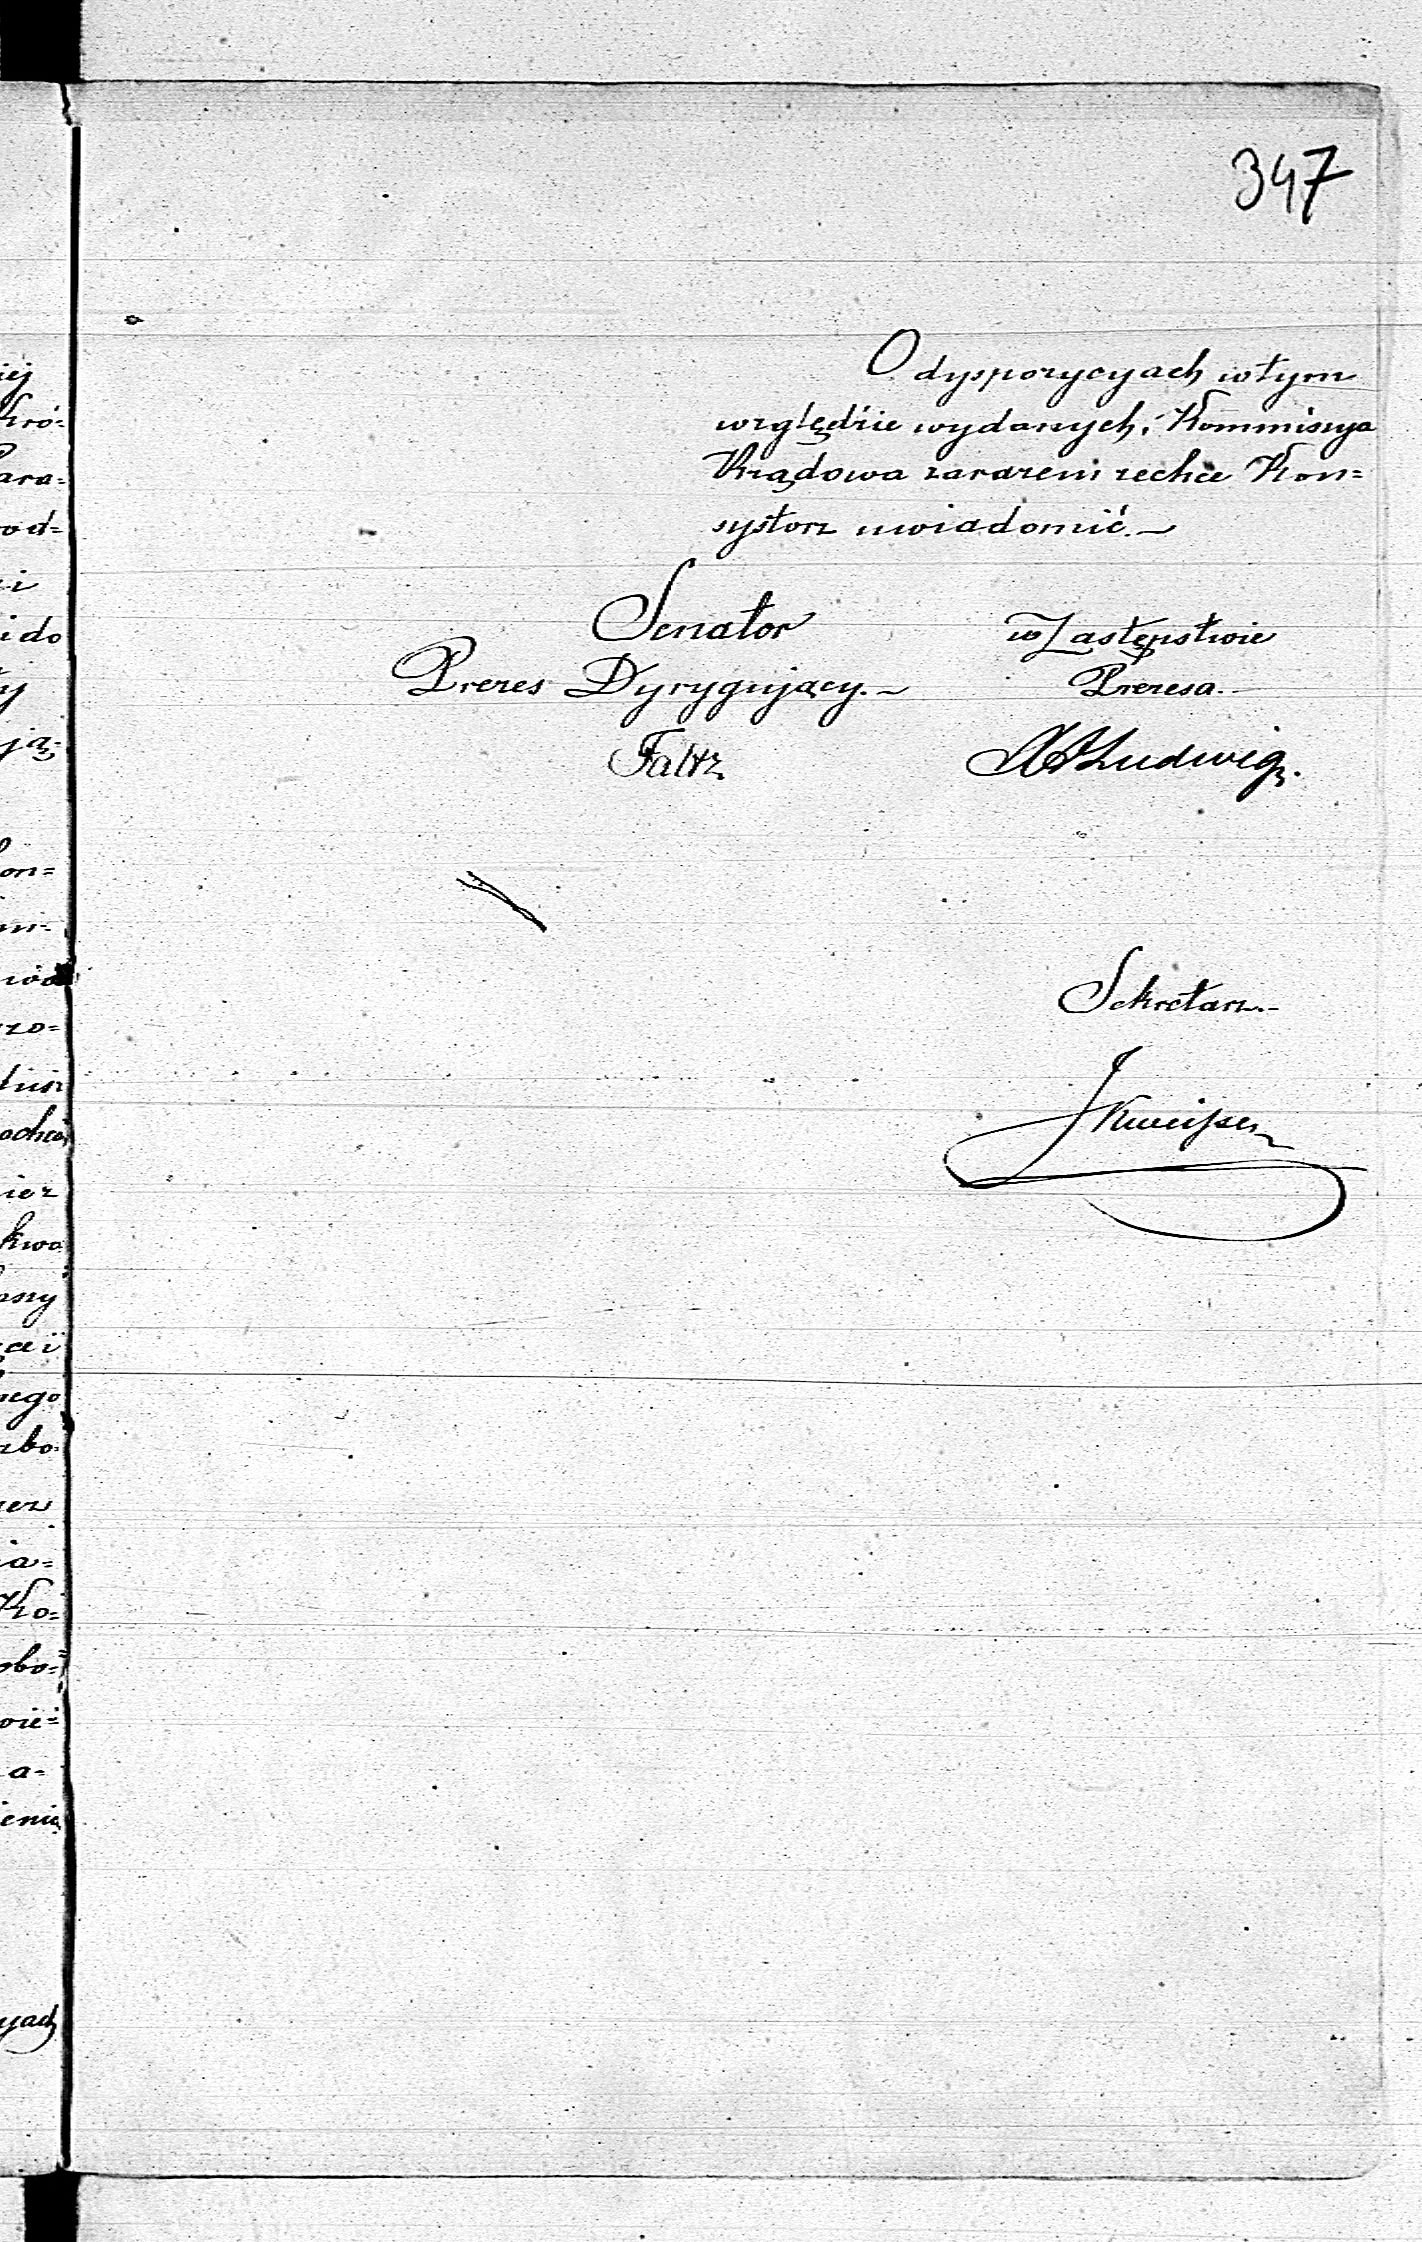 347
O dyspozycyach w tym
względzie wydanych, Kommissya
Rządowa zarazem zechce Kon=
systorz uwiadomić.—
Senator
Prezes Dyrygujący.—
Faltz
w Zastępstwie
Prezesa.—
Ludwig.
Sekretarz.—
iej
Kró=
Para=
od=
i
i do
ty
ją=
on=
zo=
kwa
any
nego
zbo=
ia=
Ko=
obo=
wie=
a=
ieniu
yach